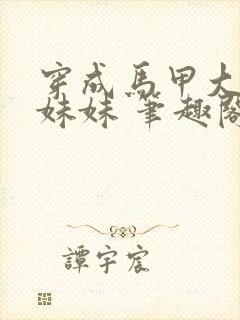 穿成馬甲大
妹妹 筆趣閣
譚宇宸